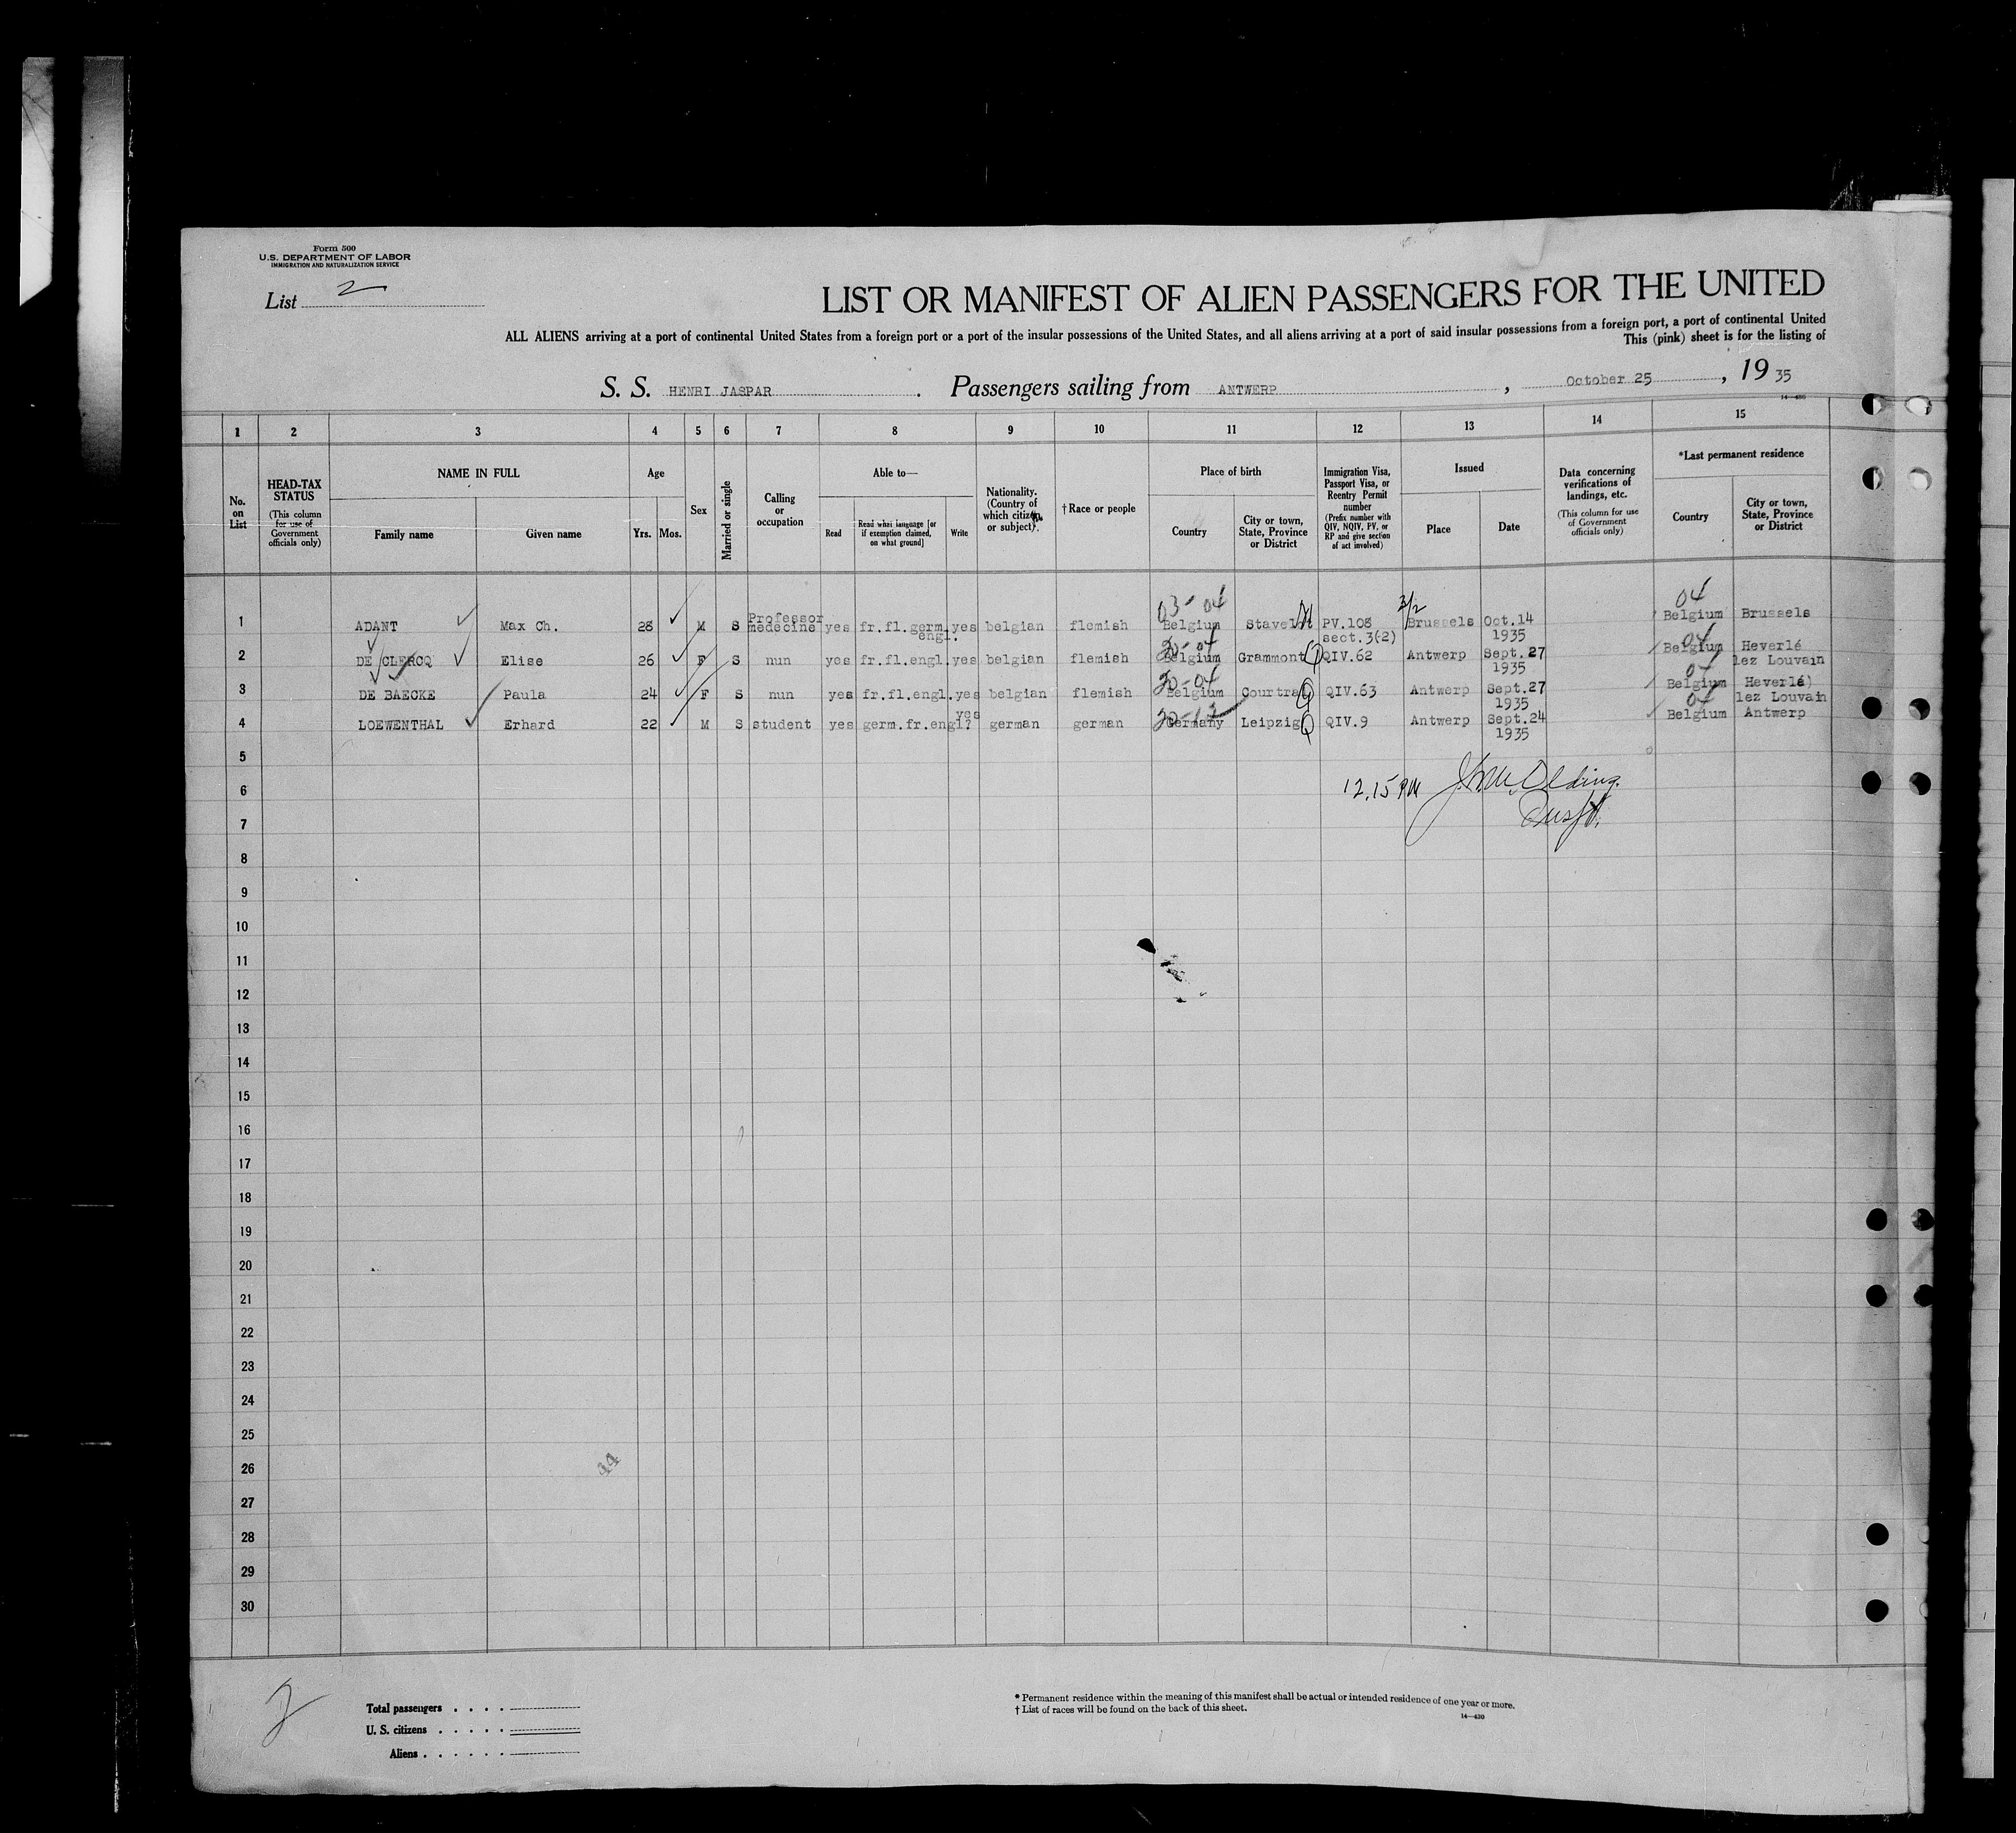 Form 500
U.S. DEPARTMENT OF LABOR
IMMIGRATION AND NATURALIZATION SERVICE
List 2
LIST OR MANIFEST OF ALIEN PASSENGERS FOR THE UNITED
ALL ALIENS arriving at a port of continental United States from a foreign port or a port of the insular possessions of the United States, and all aliens arriving at a port of said insular possessions from a foreign port, a port of continental United
This (pink) sheet is for the listing of
S. S. HENRI JASPAR. Passengers sailing from ANTWERP, October 25, 19 35
14—430
1 2 3 4 5 6 7 8 9 10 11 12 13 14 15
No. on List
HEAD-TAX STATUS
(This column for use of Government officials only)
NAME IN FULL
Family name Given name
Age
Yrs. Mos.
Sex
Married or single
Calling or occupation
Able to—
Read Read what language [or if exemption claimed, on what ground] Write
Nationality. (Country of which citizen or subject).
†Race or people
Place of birth
Country City or town, State, Province or District
Immigration Visa, Passport Visa, or Reentry Permit number
(Prefix number with QIV, NQIV, PV, or RP and give section of act involved)
Issued
Place Date
Data concerning verifications of landings, etc.
(This column for use of Government officials only)
*Last permanent residence
Country City or town, State, Province or District
03- 04 3/2 04
1 ADANT Max Ch. 28 M S Professor medecine yes fr.fl.germ. engl. yes belgian flemish Belgium Stavelot PV.108 sect.3(2) Brussels Oct.14 1935 Belgium Brussels
20-04 04
2 DE CLERCQ Elise 26 F S nun yes fr.fl.engl. yes belgian flemish Belgium Grammont QIV.62 Antwerp Sept.27 1935 Belgium Heverlé lez Louvain
20-04 04
3 DE BAECKE Paula 24 F S nun yes fr.fl.engl. yes belgian flemish Belgium Courtrai QIV.63 Antwerp Sept.27 1935 Belgium Heverlé) lez Louvain
20-12 04
4 LOEWENTHAL Erhard 22 M S student yes germ.fr.engl? yes german german Germany Leipzig QIV.9 Antwerp Sept.24 1935 Belgium Antwerp
5
6 12.15 PM
7
8
9
10
11
12
13
14
15
16
17
18
19
20
21
22
23
24
25
26
44
27
28
29
30
2
Total passengers
U. S. citizens
Aliens
* Permanent residence within the meaning of this manifest shall be actual or intended residence of one year or more.
† List of races will be found on the back of this sheet.
14—430